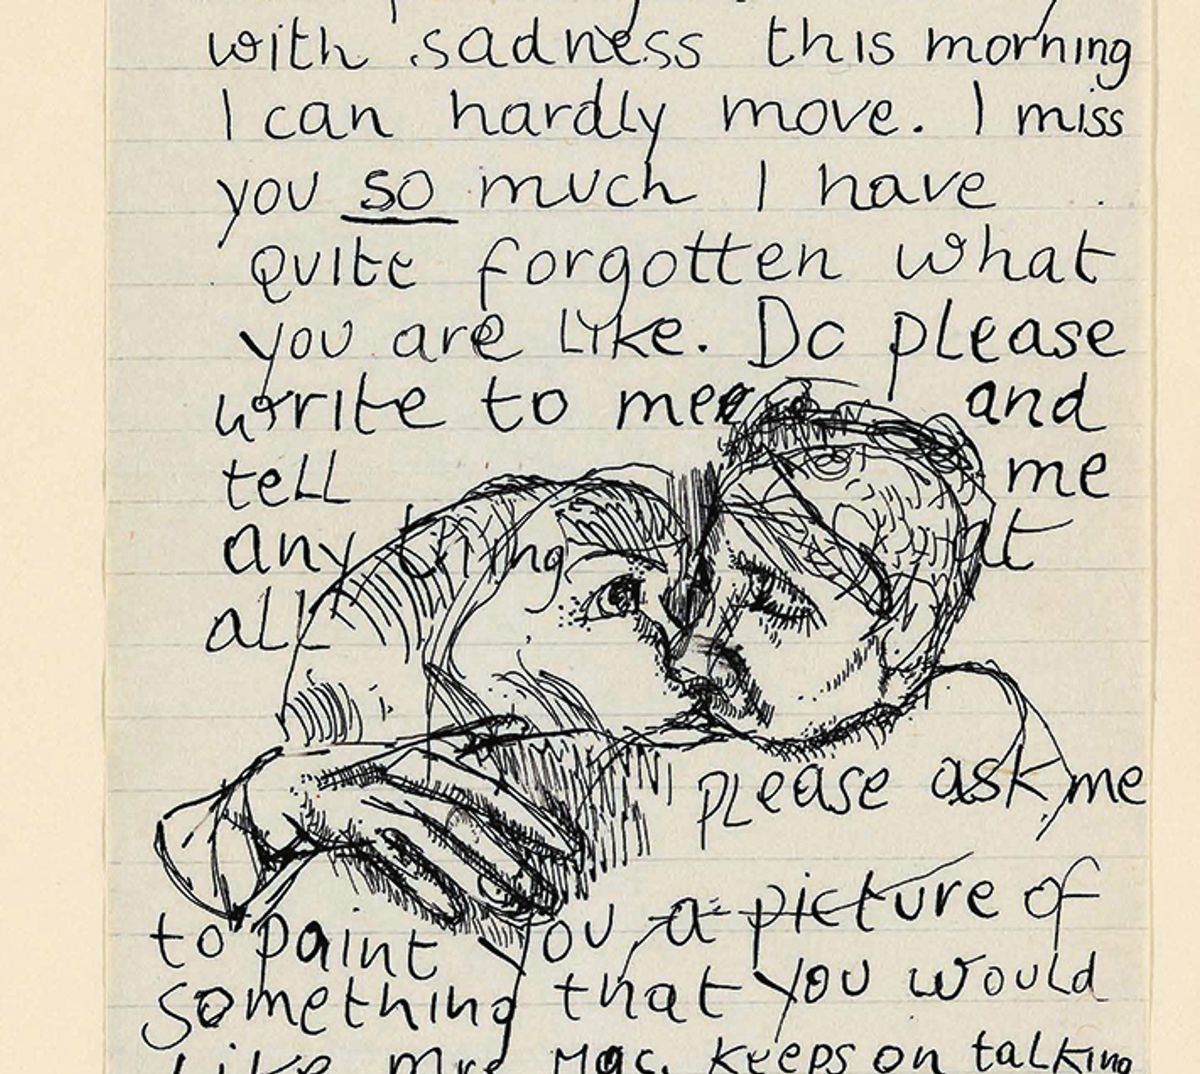 with sadness this morning
I can hardly move. I miss
you so much I have
quite forgotten what
you are like. Do please
write to me and
tell me
any thing at
all
please ask me
to paint you a picture of
something that you would
like Mrs Mac. keeps on talking